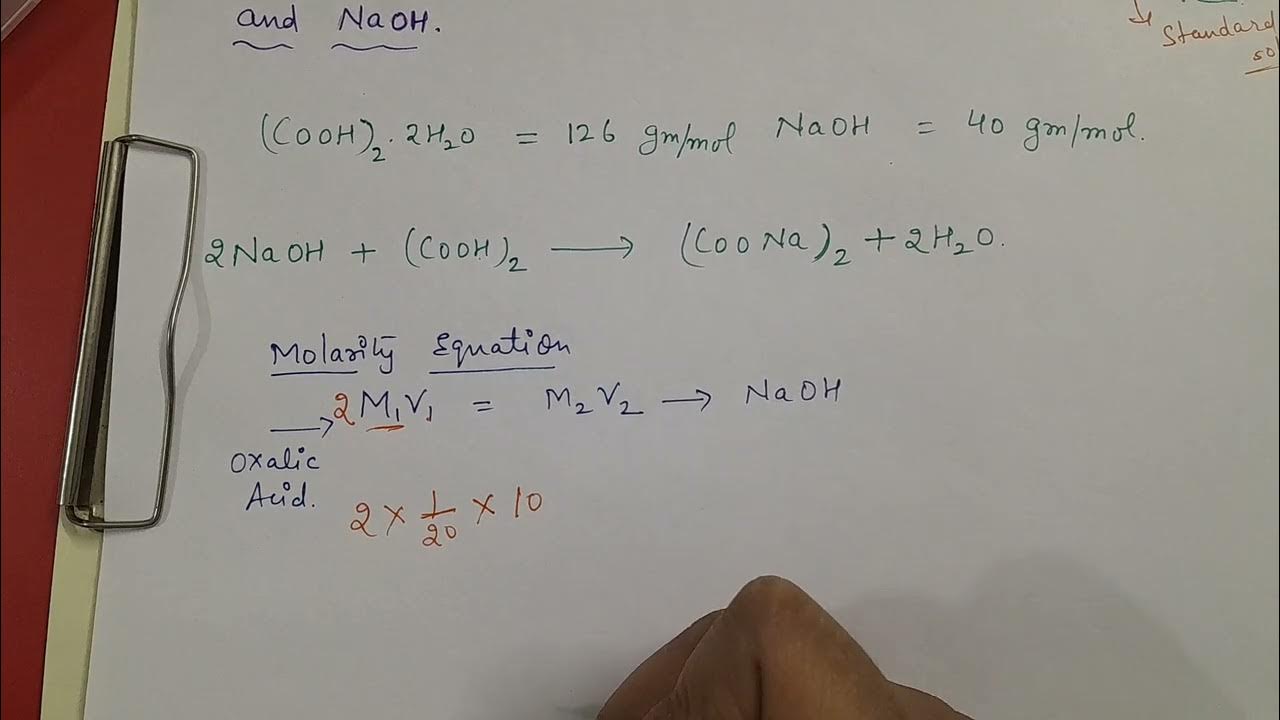 and NaOH.
Standard
(COOH)₂ . 2H₂O = 126 gm/mol NaOH = 40 gm/mol.
2NaOH + (COOH)₂ ⟶ (COONa)₂ + 2H₂O.
Molarity Equation
⟶ 2M₁V₁ = M₂V₂ ⟶ NaOH
Oxalic
Acid.
2 × 1/20 × 10